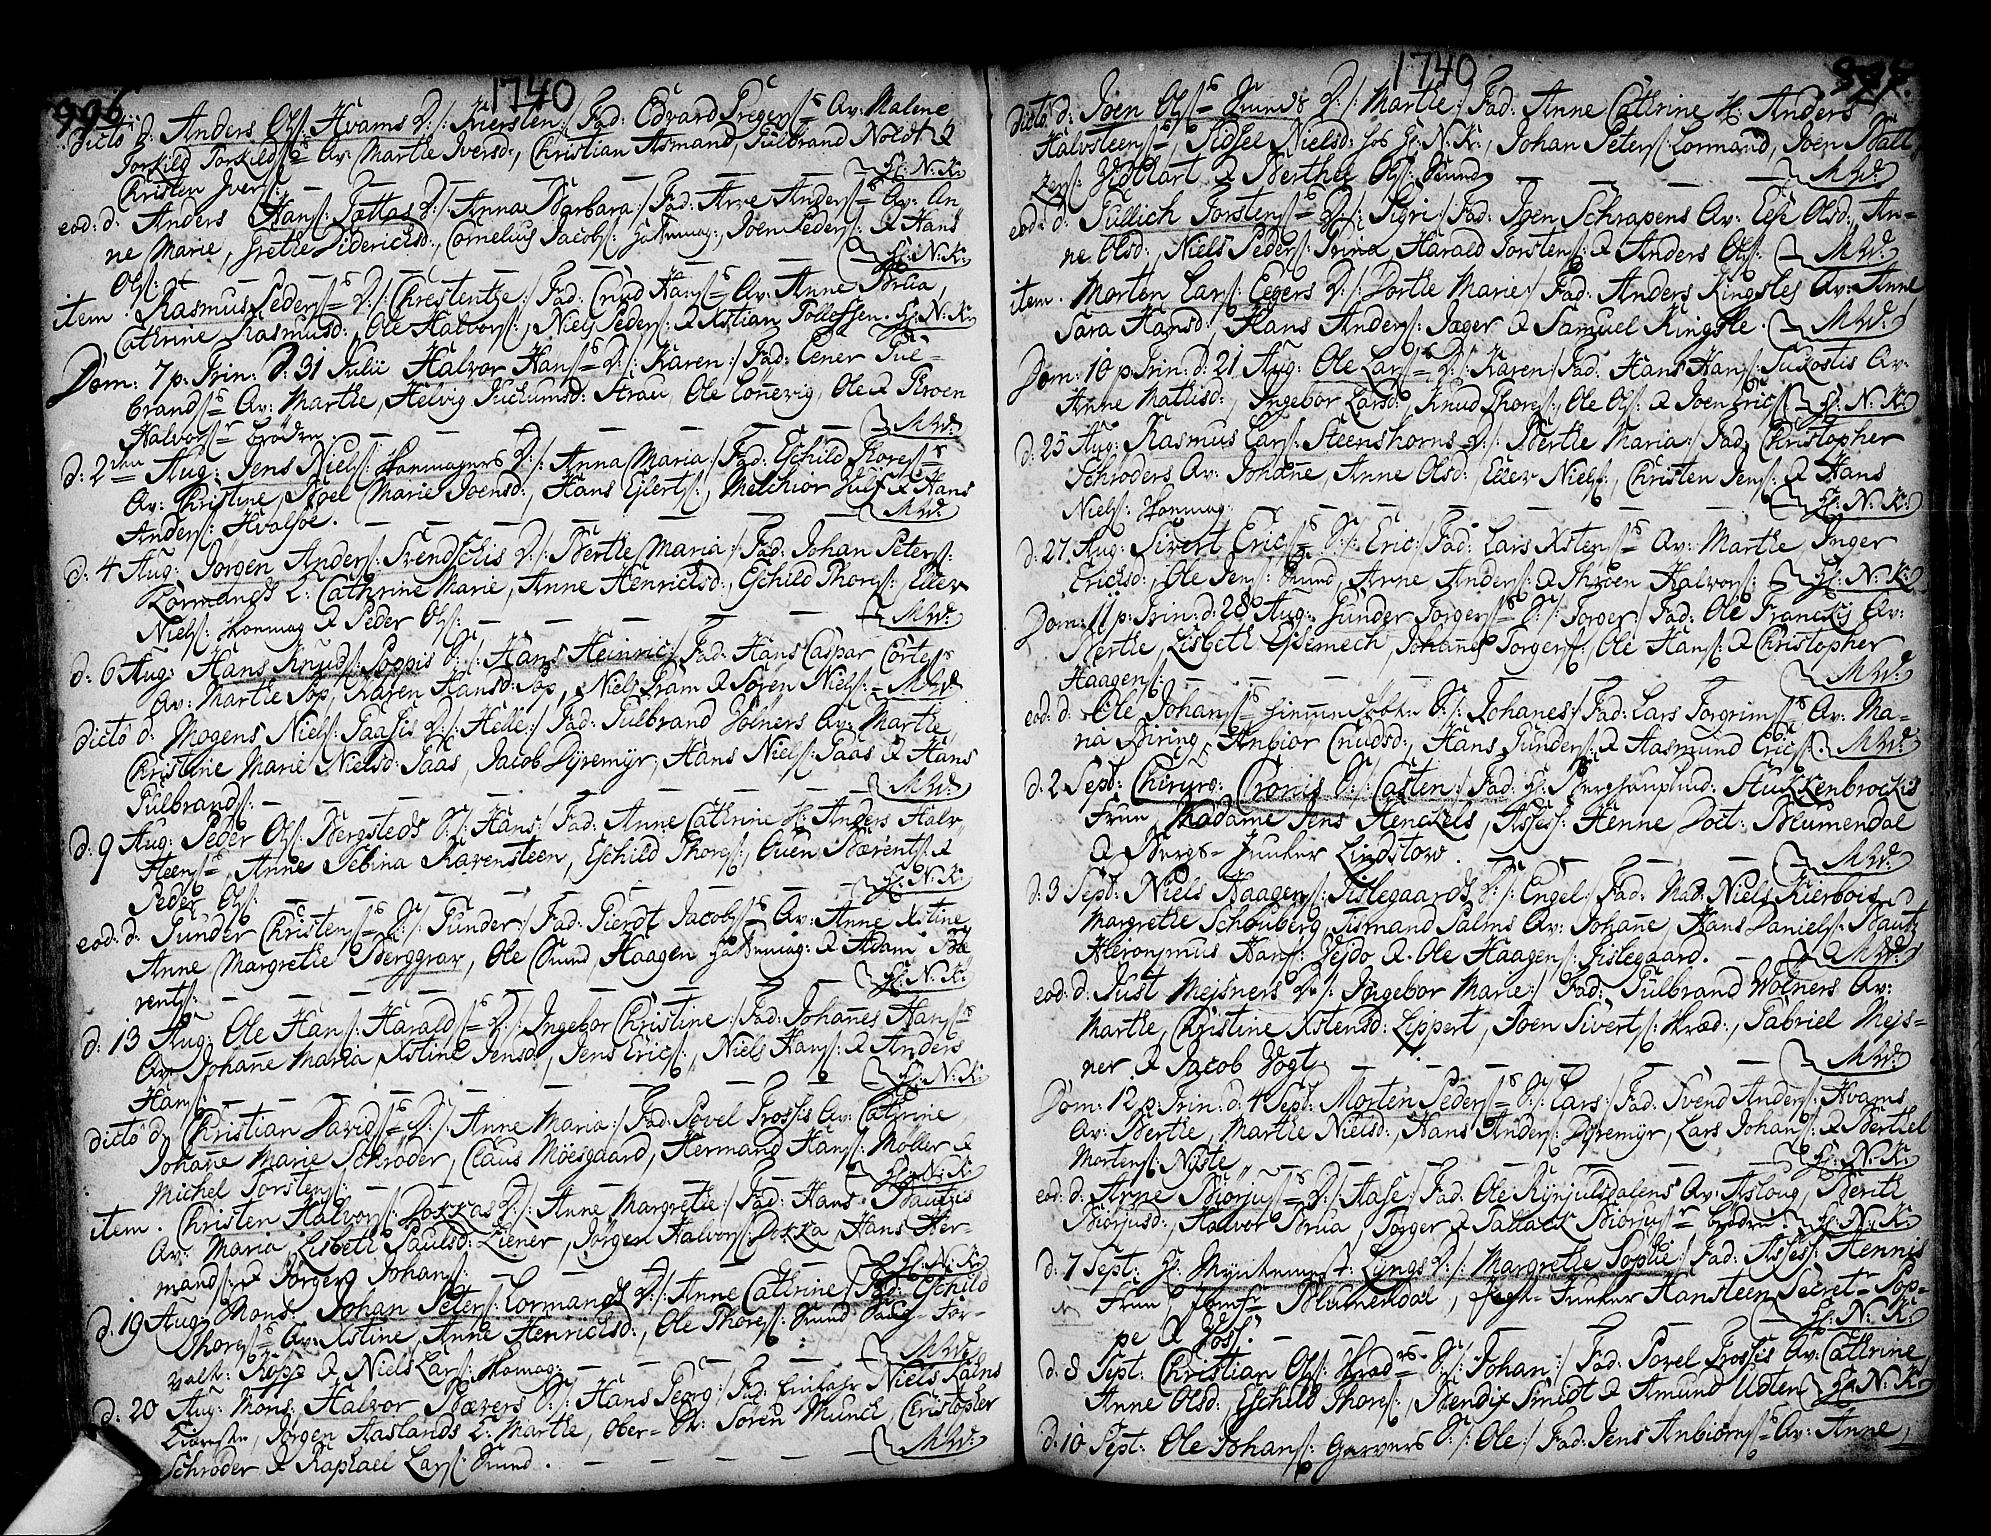 996
1740
Dicto d: Anders Ols: Hvams D:/: Kiersten:/ Fad: Edvard Gregers: Av: Malene
Torkild Torkilds: Av: Marthe Iversd:, Christian Asmand, Gulbrand Noldt &
Christen Ivers: — — — — H: N: K:
eod: d: Anders Hans: Tattas D:/: Anna Barbara:/ Fad: Arne Anders: Av: An
ne Marie, Grethe Diderichsd:, Cornelius Jacobs:, Joen Peders: & Hans
Ols: — — — — H: N: K:
item. Rasmus Peders: D:/: Chrestentze:/ Fad: Cnud Hans: Av: Anne Brua,
Cathrine Rasmusd:, Ole Halvors:, Niels Peders: & Xstian Tollefsen. H: N: K:
Dom: 7 p: Trin: d: 31 Julii Halvor Hans: D:/: Karen:/ Fad: Eener Gul-
brands: Av: Marthe, Helvig Fuchumsd: Strau, Ole Lonevig, Ole & Throen
Halvors: brödre. — — — —
d: 2 Aug: Jens Niels: Honmagers D:/: Anna Maria:/ Fad: Eschild Thores:
Av: Christine, Noel Marie Joensd:, Hans Eilerts:, Melchior & Hans
Anders: Hvalsöe. — — — —
d: 4 Aug: Jörgen Anders: Svendschis D:/: Berthe Maria:/ Fad: Johan Peters:
Lormands L: Cathrine Marie, Anne Henrichsd:, Eschild Thores:, Eller
Niels: Honmag & Peder Ols: — — —
d: 6 Aug: Hans Knuds: Poppis S:/: Hans Heinric:/ Fad: Hans Caspar Cortes
Av: Marthe Pop, Karen Hansd: Pop, Niels Fram & Sören Niels:
dicto d: Mogens Niels: Saasis D:/: Helle:/ Fad: Gulbrand Wölners Av: Marthe
Christine Marie Nielsd: Saas, Jacob Dyremyr, Hans Niels: Saas & Hans
Gulbrands: — — — —
d: 9 Aug: Peder Ols: Bergsteds S:/: Hans:/ Fad: Anne Cathrine H: Anders Halv
steens:, Anne Sebina Ravensteen, Eschild Thores:, Ouen Bærents: &
Peder Ols: — — — H: N: K:
eod: d: Gunder Christens: S:/: Gunder:/ Fad: Gierdt Jacobs: Av: Anne Xstine
Anne Margrethe Berggrav, Ole Smind, Haagen & Adam Bæ
rents: — — — — H: N: K:
d: 13 Aug: Ole Hans: Haralds: D:/: Ingebor Christine:/ Fad: Johanes Hans:
Av: Johane Maria, Xstine Jensd:, Jens Erics:, Niels Hans: & Anders
Hans: — — — — H: N: K:
dicto d: Christian Davids: D:/: Anne Maria:/ Fad: Povel Frossis Av: Cathrine
Johane Marie Schröder, Claus Möesgaard, Hermand Hans: Moller &
Michel Torstens: — — — H: N: K:
item. Christen Halvors: Dokkas D:/: Anne Margrethe:/ Fad: Hans Bautzis
Av: Maria, Lisbeth Paulsd: Liener, Jörgen Halvors: Dokka, Hans Her-
mands: & Jörgen Johans: — — H: N: K:
d: 19 Aug: Mons: Johan Peters: Lormands D:/: Anne Cathrine:/ Fad: Eschild
Thores: Av: Xstine, Anne Henrichsd:, Ole Thores: Smind, For-
valt: Kopp & Niels Lars: Homag: — —
d: 20 Aug: Mons: Halvor Bævers S:/: Hans Georg:/ Fad: Niels Kalns
Jörgen Aaslands L: Marthe, Ober- Sören Munch, Christopher
Schröder & Raphael Lars: Smind. — —
1740
997.
dicto d: Joen Ols: Sminds D:/: Marthe:/ Fad: Anne Cathrine H: Anders
Halvsteens:, Sidsel Nielsd: hos H: N: K:, Johan Peters: Lormand, Joen Balt
zers: & Berthel Ols: Smind — —
eod: d: Tallich Torstens: D:/: Sigri:/ Fad: Joen Schrapens Av: Else Olsd:, An-
ne Olsd:, Niels Peders: Prina, Harald Torstens: & Anders Ols: —
item. Morten Lars: Eegers D:/: Dorthe Marie:/ Fad: Anders Kingsles Av: Anne
Sara Hansd:, Hans Anders: Jæger & Samuel Kingsle.
Dom: 10 p: Trin: d: 21 Aug: Ole Lars: D:/: Karen:/ Fad: Hans Hans: Av:
Anne Mathisd:, Ingebor Larsd:, Knud Thores:, Ole Ols: & Joen Erics: H: N: K:
d: 25 Aug: Rasmus Lars: Steenshorns D:/: Berthe Maria:/ Fad: Christopher
Schröders Av: Johane, Anne Olsd:, Eller Niels:, Christen Jens: & Hans
Niels: Honmag: — — — H: N: K:
d: 27 Aug: Sivert Erics: S:/: Eric:/ Fad: Lars Xstens: Av: Marthe Inger
Erichsd:, Ole Jens: Smind, Arne Anders: & Throen Halvors: H: N: K:
Dom: 11 p: Trin: d: 28 Aug: Gunder Torgers: S:/: Torger:/ Fad: Ole Francisis Av:
Berthe, Lisbeth Giemech, Johanes Torgers:, Ole Hans: & Christopher
Haagens: — — — —
eod: d: Ole Johans: S:/: Johanes:/ Fad: Lars Torgrims: Av: Ma-
ria Biring, Anbior Cnudsd:, Hans Gunders: & Aasmund Erics:
d: 2 Sept: Chirurg: Cronis S:/: Casten:/ Fad: H: Berghauptmd: Stukkenbrockis
Frue, Madame Jens Henckels, Assess: Henne, Doct: Blumendal
& Bergs-Juncker Lindstow. — —
d: 3 Sept: Niels Haagens: Gislegaards D:/: Engel:/ Fad: Mad: Niels Kierbois
Margrethe Schouberg, Asmand Salms Av: Johane, Hans Daniels: Bautz
Hieronymus Hans: Vejdo & Ole Haagens: Gislegaard. —
eod: d: Just Mejsners D:/: Ingebor Marie:/ Fad: Gulbrand Wölners Av:
Marthe, Christine Xstensd: Lippert, Joen Siverts:, Gabriel Mejs-
ner & Jacob Vogt — — —
Dom: 12 p: Trin: d: 4 Sept: Morten Peders: S:/: Lars:/ Fad: Svend Anders: Hvams
Av: Berthe, Marthe Nielsd:, Hans Anders: Dyremyr, Lars Johans: & Berthel
Mortens: Nyste — — — H: N: K:
eod: d: Arne Biörjus: D:/: Aase:/ Fad: Ole Rynjulsdalens Av: Asloug, Berith
Biörjusd:, Halvor Brua, Torger & Tallach Biörjus: brödre. H: N: K:
d: 7 Sept: H: Myntmester Lyngs D:/: Margrethe Sophie:/ Fad: Assess: Hennis
Frue, Jomfr Blumendal, Juncker Hansteen, Secret: Pop-
pe & Vos: — — — H: N: K:
d: 8 Sept: Christian Ols: S:/: Johan:/ Fad: Povel Frossis Av: Cathrine
Anne Olsd:, Eschild Thores:, Bendix Smidt & Amund Udten H: N: K:
d: 10 Sept: Ole Johans: Garvers S:/: Ole:/ Fad: Jens Anbiörns: Av: Anne,